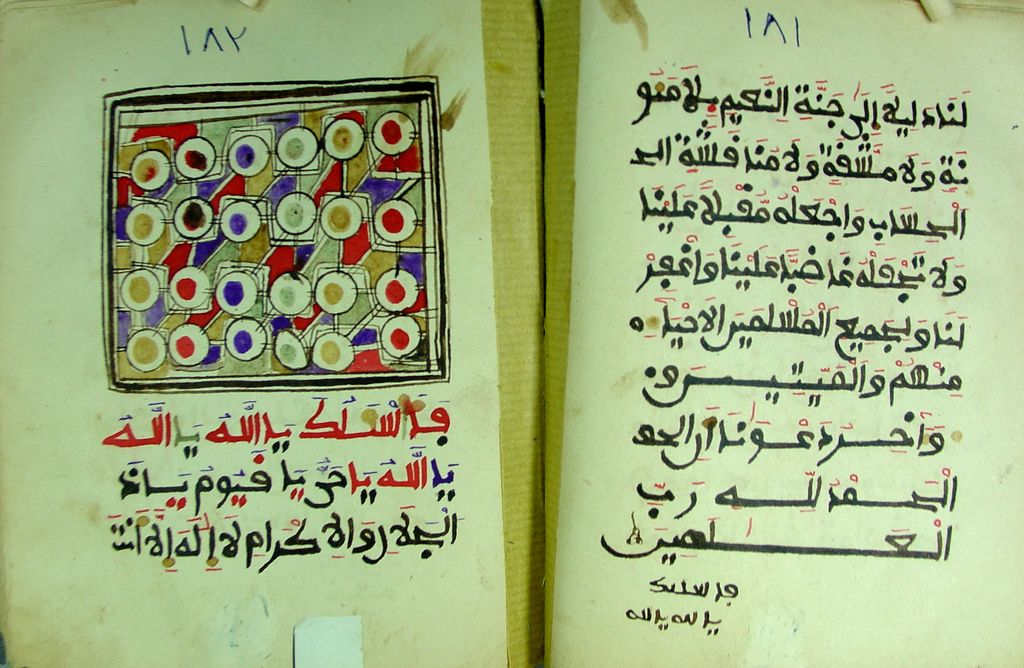 ١٨١
لنا دليلا إلى جنة النعيم بلا مئو
نة ولا مشقة ولا مناقشة الحـ
الحساب واجعله مقبلا علينا
ولا تجعله غاضبا علينا واغفر
لنا ولجميع المسلمين الاحياء
منهم والميتين
وآخر دعونا أن الحمـ
الحمد لله رب
العلمين
فاسئلك
يا الله يا الله
١٨٢
فاسئلك يا الله يا الله
يا الله يا حي يا قيوم يا ذا
الجلال والاكرام لا إله إلا أنت